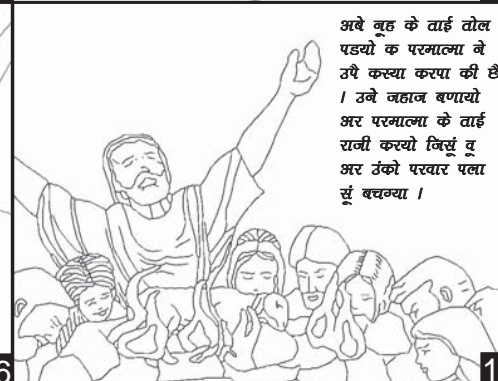 अबे नूह के ताई तोल
पडयो क परमात्मा ने
उपै कस्या करपा की छै
। उने जहाज बणायो
अर परमात्मा के ताई
राजी करयो जिसूं वू
अर उंको परवार पला
सूं बचग्या ।
6
1